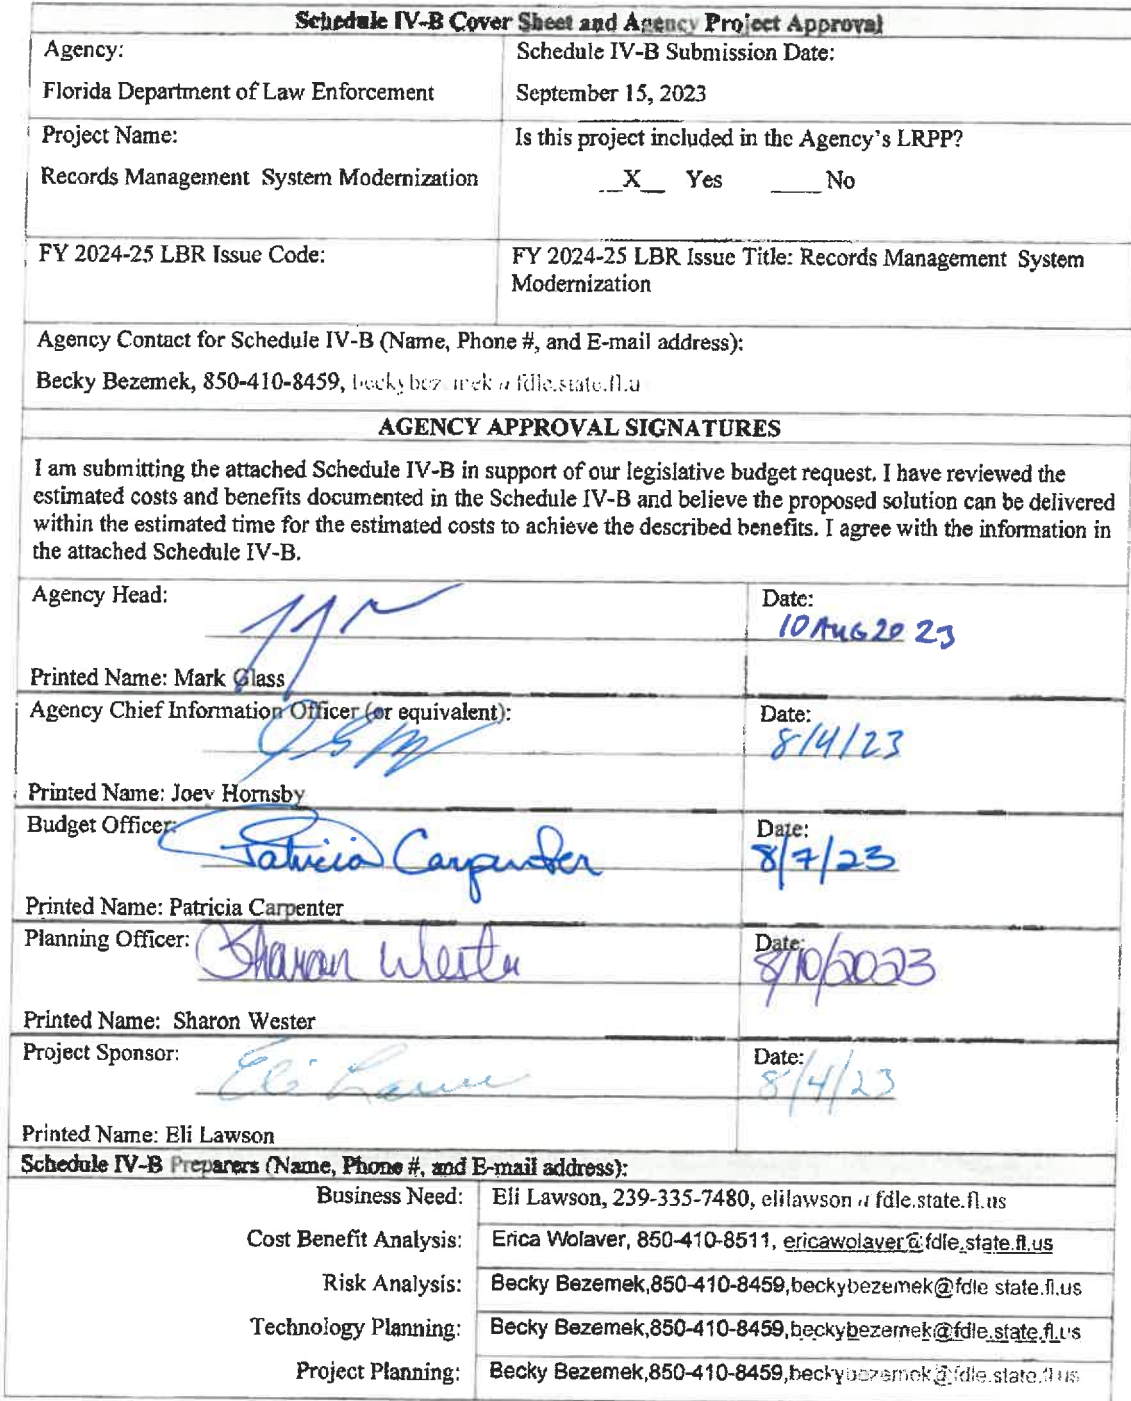 Schedule IV-B Cover Sheet and Agency Project Approval
Agency:
Florida Department of Law Enforcement
Schedule IV-B Submission Date:
September 15, 2023
Project Name:
Records Management System Modernization
Is this project included in the Agency's LRPP?
__X__ Yes ____ No
FY 2024-25 LBR Issue Code:
FY 2024-25 LBR Issue Title: Records Management System
Modernization
Agency Contact for Schedule IV-B (Name, Phone #, and E-mail address):
Becky Bezemek, 850-410-8459,
AGENCY APPROVAL SIGNATURES
I am submitting the attached Schedule IV-B in support of our legislative budget request. I have reviewed the
estimated costs and benefits documented in the Schedule IV-B and believe the proposed solution can be delivered
within the estimated time for the estimated costs to achieve the described benefits. I agree with the information in
the attached Schedule IV-B.
Agency Head:
Date:
10 AUG 20 23
Printed Name: Mark Glass
Agency Chief Information Officer (or equivalent):
Date:
8/4/23
Printed Name: Joey Hornsby
Budget Officer:
Patricia Carpenter
Date:
8/7/23
Printed Name: Patricia Carpenter
Planning Officer:
Sharon Wester
Date:
8/10/2023
Printed Name: Sharon Wester
Project Sponsor:
Eli Lawson
Date:
8/4/23
Printed Name: Eli Lawson
Schedule IV-B Preparers (Name, Phone #, and E-mail address):
Business Need: Eli Lawson, 239-335-7480, elilawson@fdle.state.fl.us
Cost Benefit Analysis: Erica Wolaver, 850-410-8511, ericawolaver@fdle.state.fl.us
Risk Analysis: Becky Bezemek,850-410-8459,beckybezemek@fdle.state.fl.us
Technology Planning: Becky Bezemek,850-410-8459,beckybezemek@fdle.state.fl.us
Project Planning: Becky Bezemek,850-410-8459,beckybezemek@fdle.state.fl.us